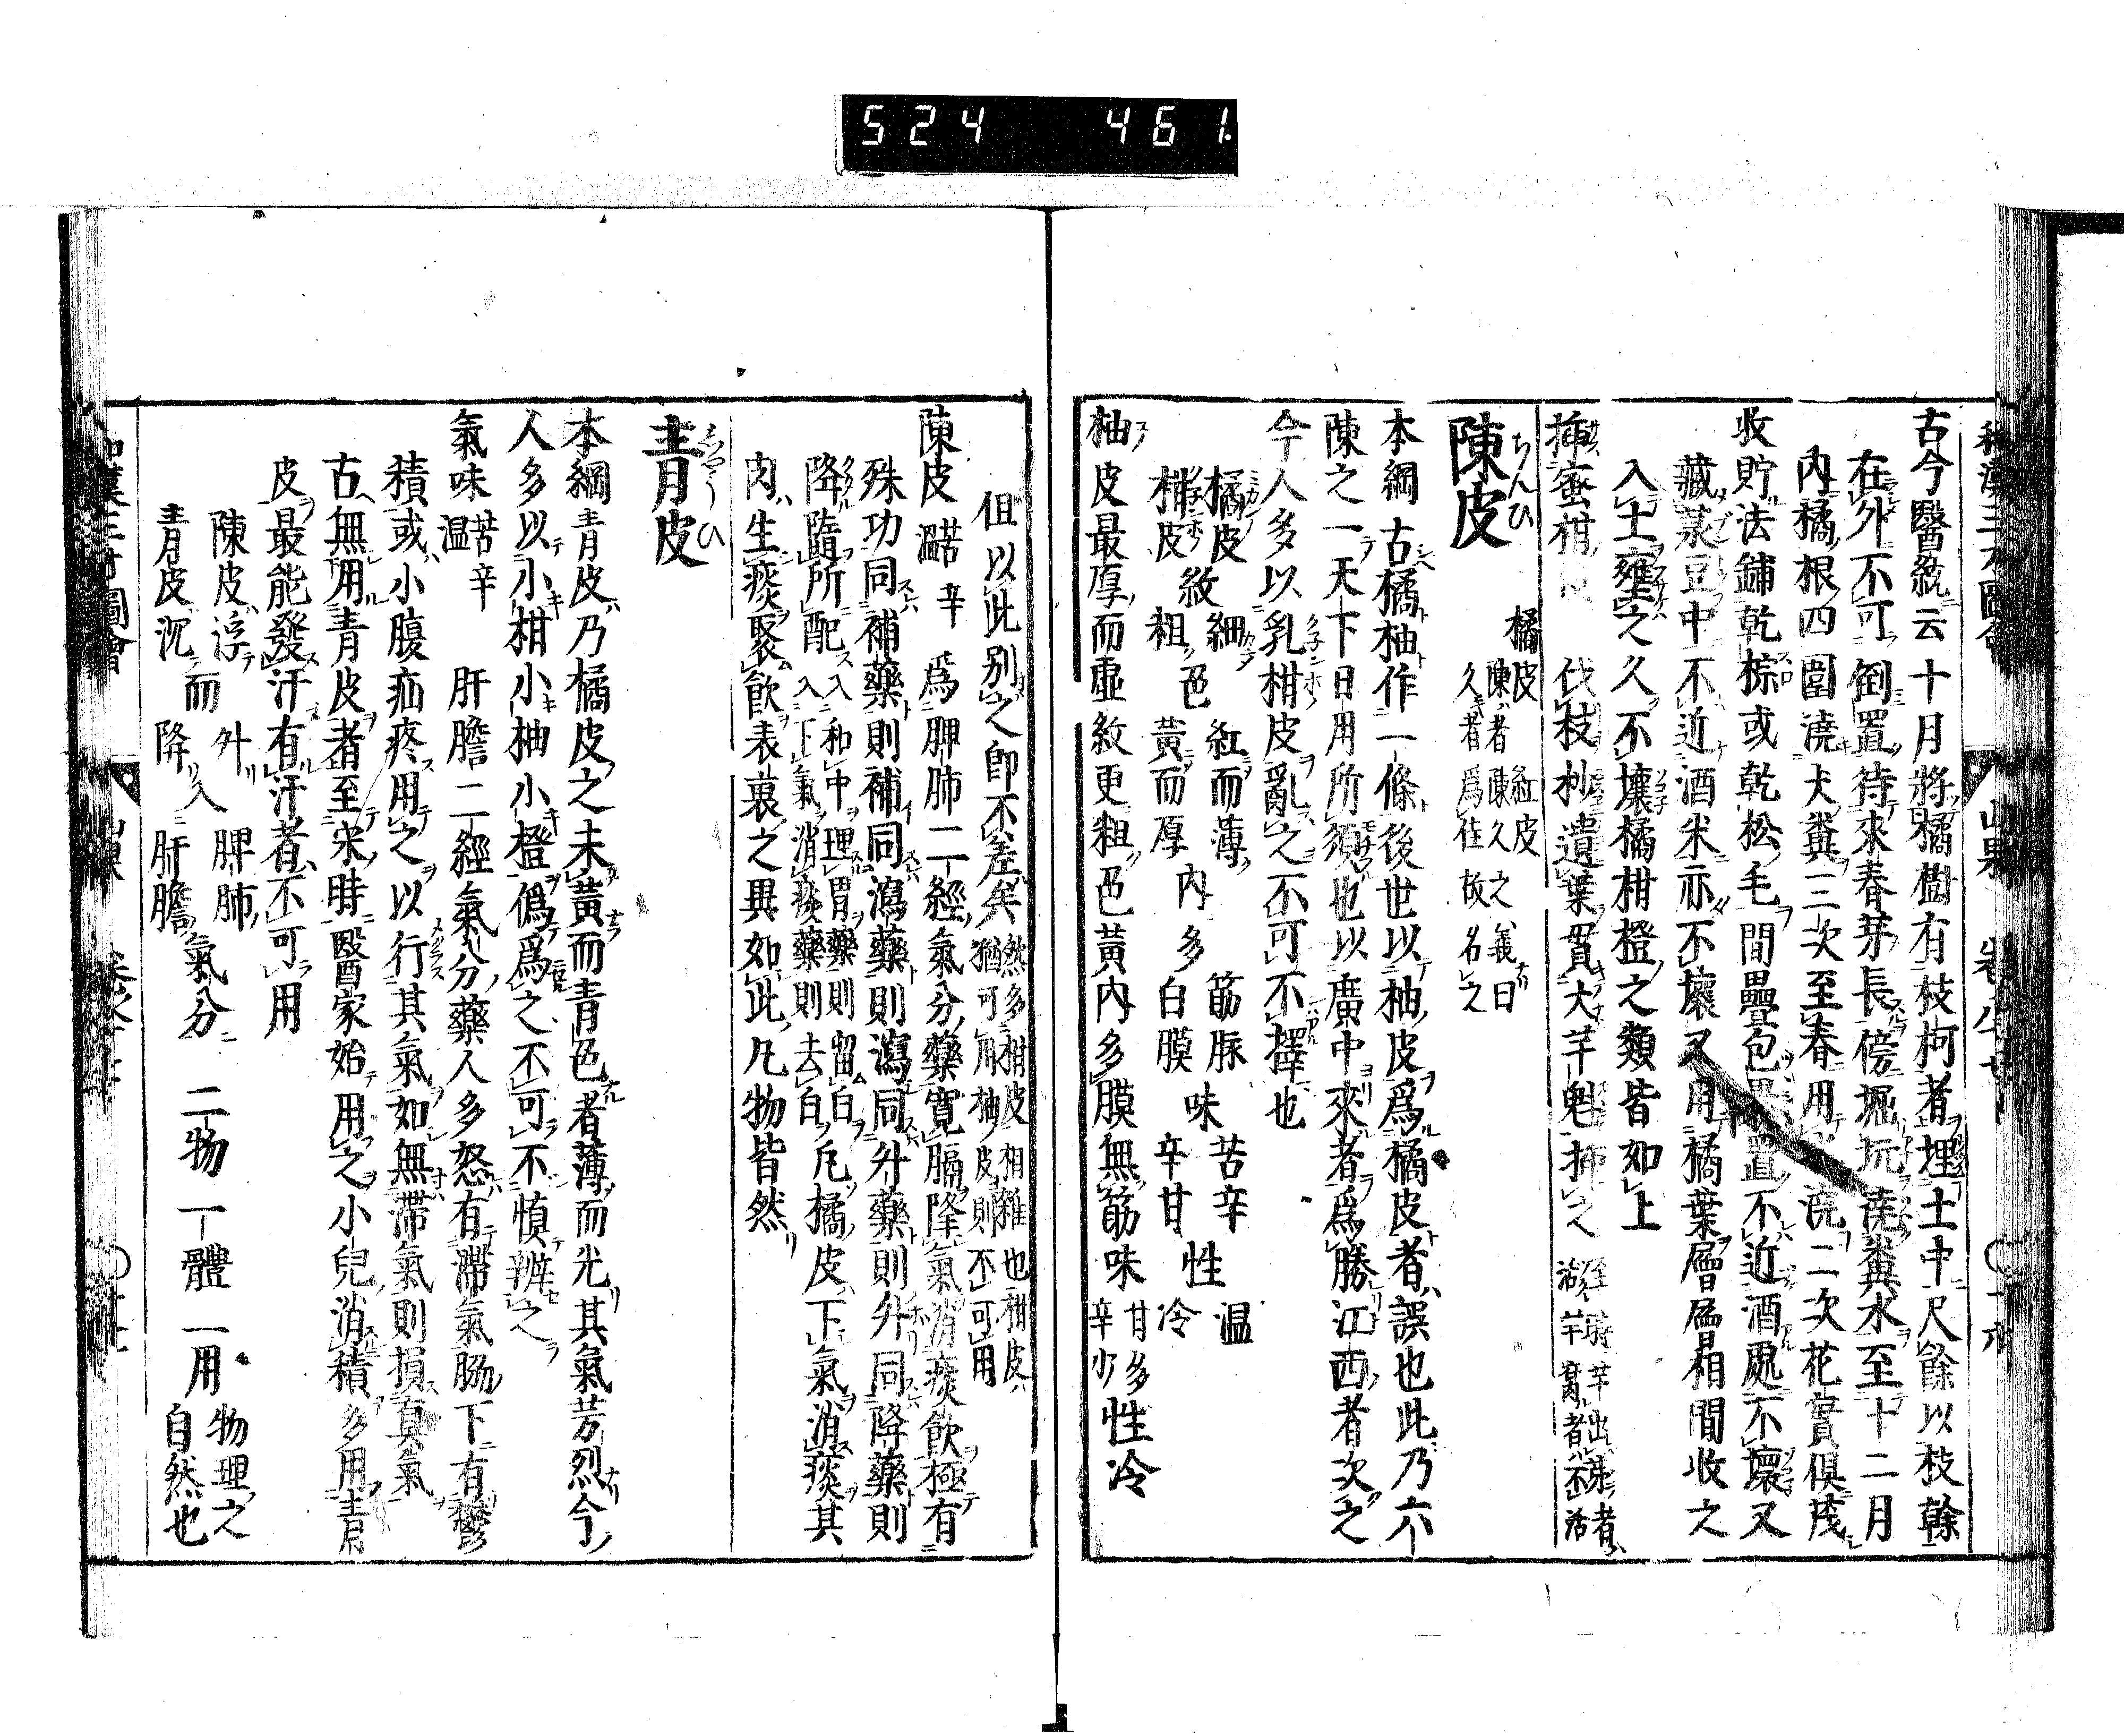 524 461
古今醫統云十月將橘樹有枝柯者埋土中尺餘以枝幹
在外不可倒置待來春芽長傍堀坑澆糞水至十二月
內橘根四圍澆犬糞三次至春用澆二次花實俱茂
收貯法鋪乾棕或乾松毛間疊包置不近酒處不壞又
藏菉豆中不近酒米亦不壞又用橘葉層層相間收之
入土壅之久不壞橘柑橙之類皆如上
插蜜柑 伐枝杪遺葉貫大芋魁插之
陳皮 ちんひ
橘皮 紅皮
陳者陳久之義日
久者爲佳故名之
本綱古橘柚作一條後世以柚皮爲橘皮者誤也此乃六
陳之一天下日用所須也以廣中來者爲勝江西者次之
今人多以乳柑皮亂之不可不擇也
橘皮紋細色紅而薄內多筋脈味苦辛性温
柑皮紋粗色黃而厚內多白膜味辛甘性冷
柚皮最厚而虛紋更粗色黃內多膜無筋味甘多辛少性冷
但以此別之卽不差矣然多柑皮相雜也柑皮猶可用柚皮則不可用
陳皮 苦辛温 爲脾肺二經氣分藥寬膈降氣消痰飲極有
殊功同補藥則補同瀉藥則瀉同升藥則升同降藥則
降隨所配入和中理胃藥則留白入下氣消痰藥則去白凡橘皮下氣消痰其
肉生痰聚飲表裏之異如此凡物皆然
青皮 しやうひ
本綱青皮乃橘皮之未黃而青色者薄而光其氣芳烈今
人多以小柑小柚小橙僞爲之不可不慎辨之
氣味 苦辛温 肝膽二經氣分藥人多怒有滯氣脇下有鬱
積或小腹疝疼用之以行其氣如無滯氣則損眞氣
古無用青皮者至宋時醫家始用之小兒消積多用青
皮最能發汗有汗者不可用
陳皮浮而外入脾肺氣分
青皮沉而降入肝膽氣分
二物一體一用物理之自然也